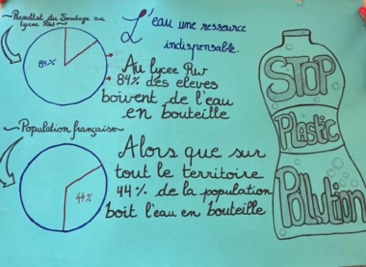 ~Resultat du Sondage au
lycee Rur~
84%
L'eau une ressource
indispensable.
Au lycee Rur
84% des eleves
boivent de l'eau
en bouteille
~Population française~
44%
Alors que sur
tout le territoire
44% de la population
boit l'eau en bouteille
STOP
Plastic
Pollution